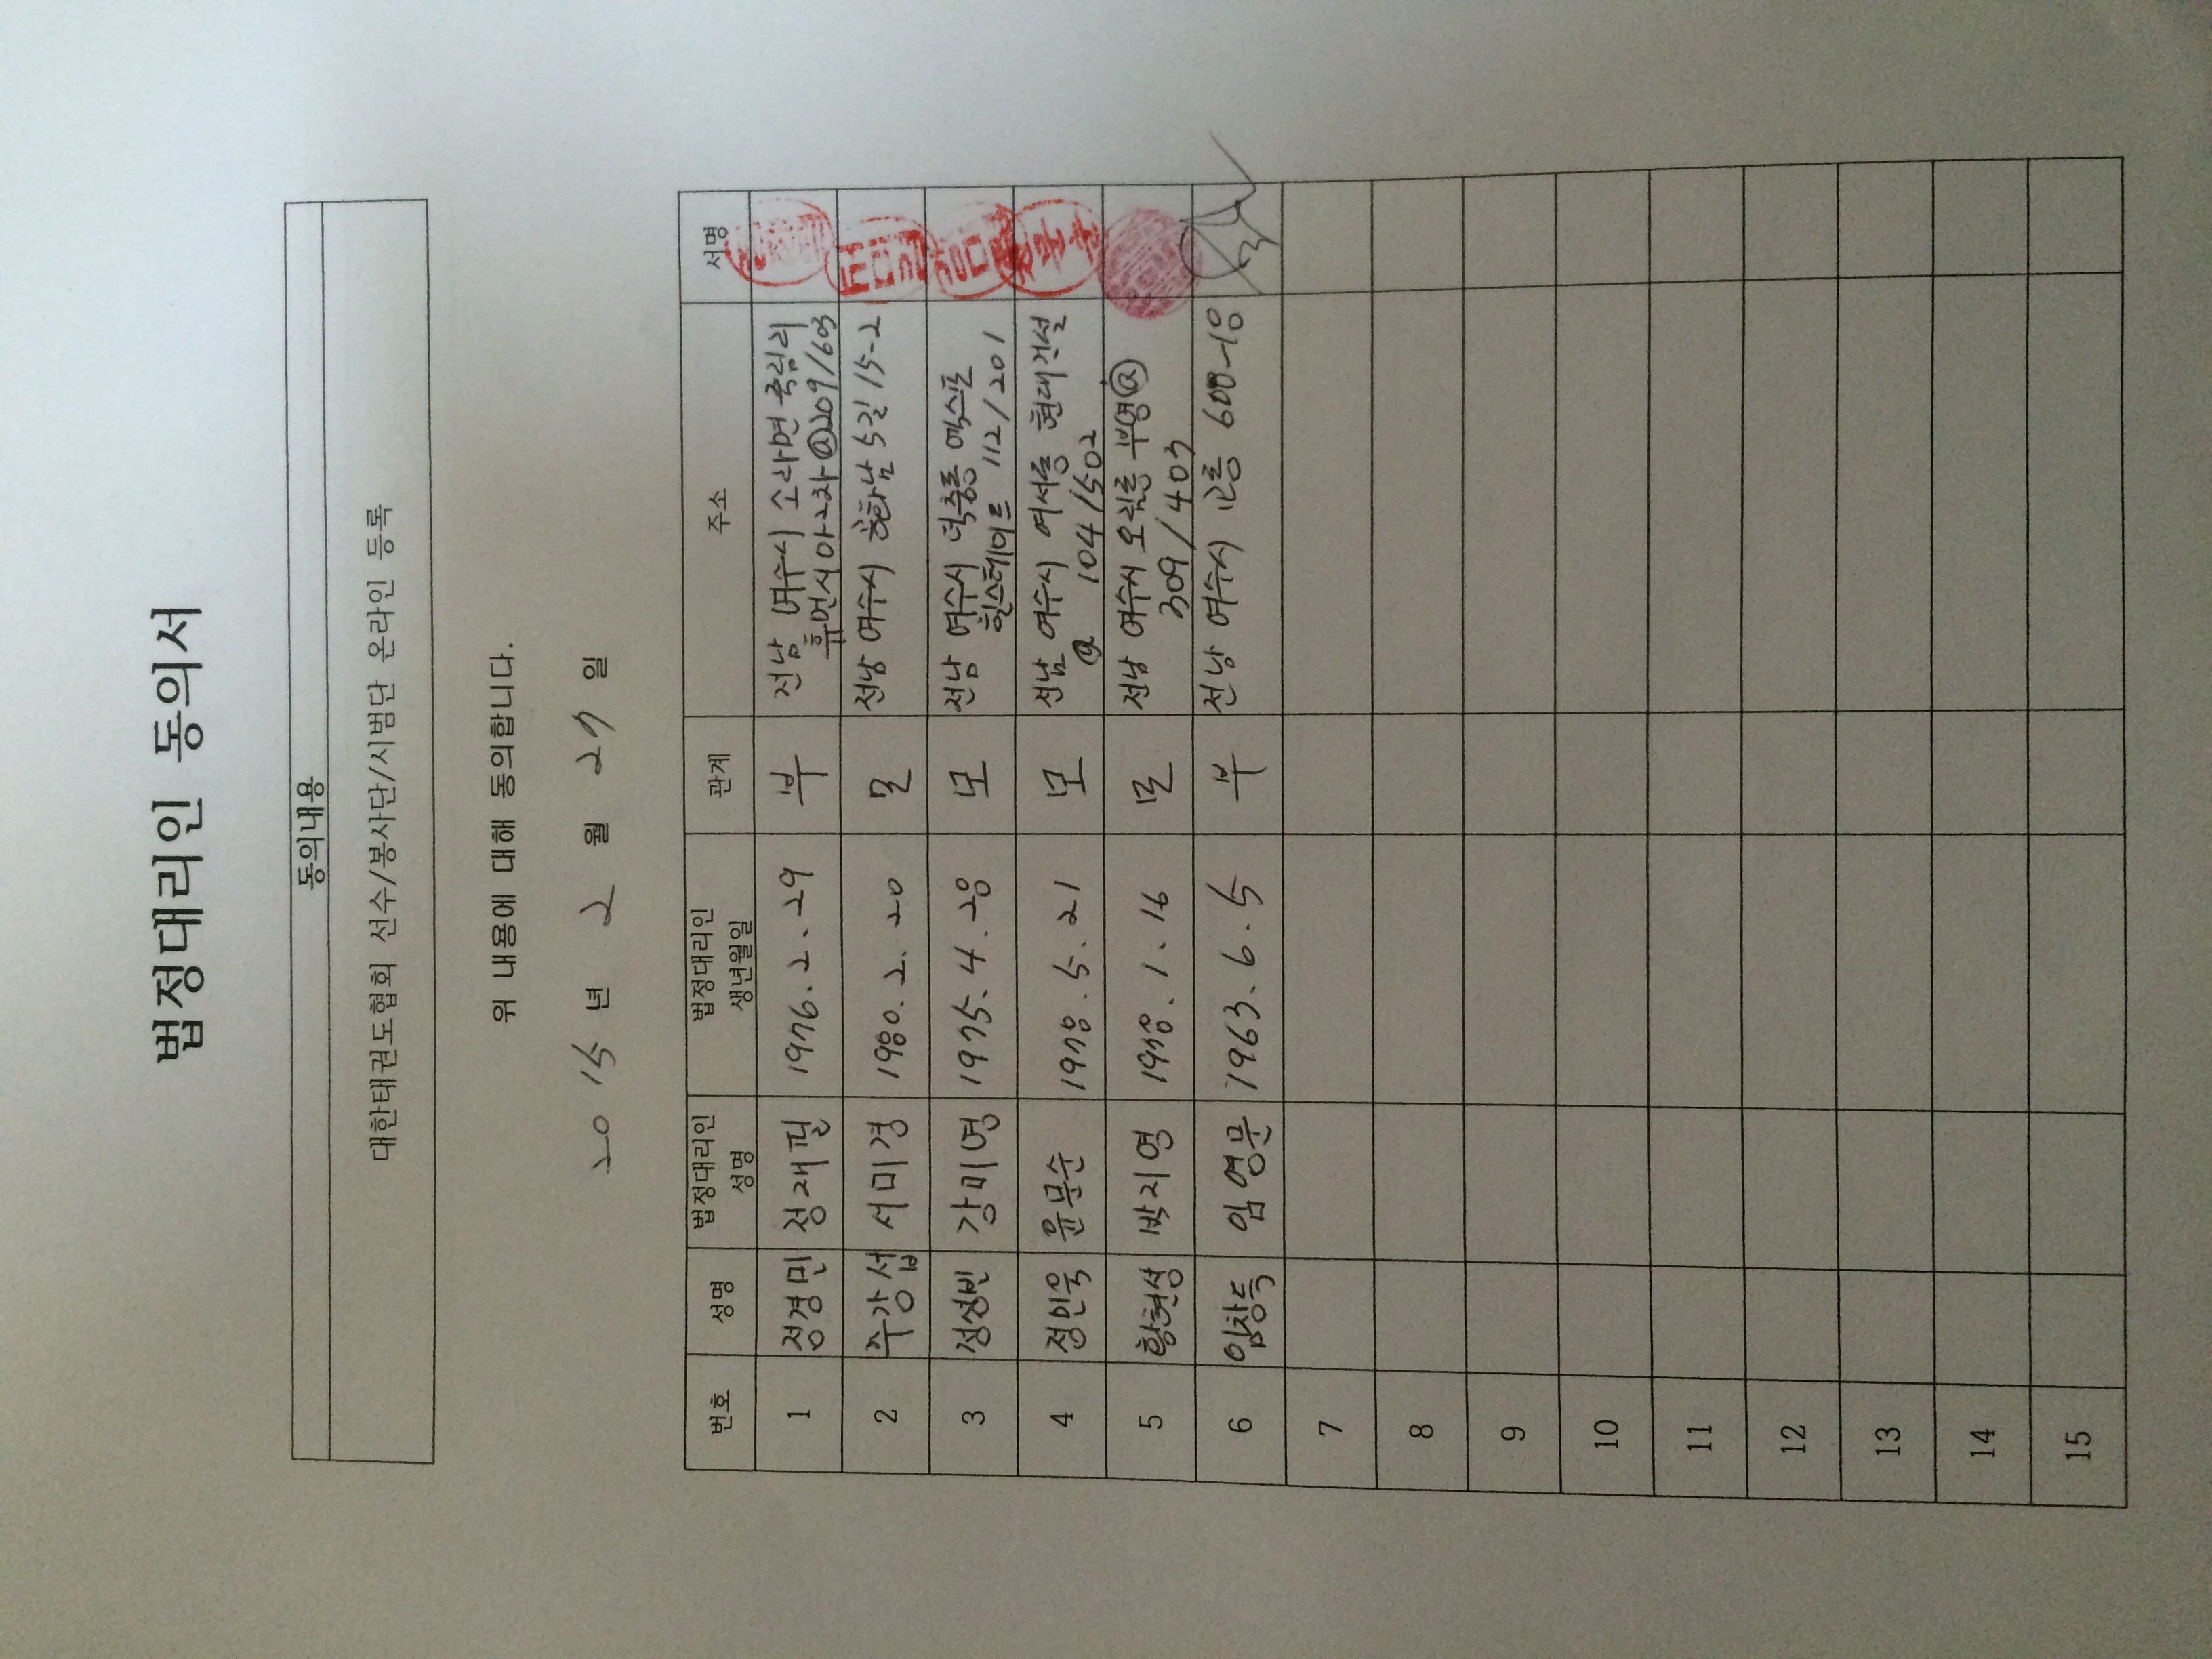 법정대리인 동의서
동의내용
대한태권도협회 선수/봉사단/시범단 온라인 등록
위 내용에 대해 동의합니다.
2015 년 2 월 27 일
번호 성명 법정대리인 성명 법정대리인 생년월일 관계 주소 서명
1 정경민 정재필 1976.2.29 부 전남 여수시 소라면 죽림리
휴먼시아2차@209/603
2 주강섭 서미경 1980.2.20 모 전남 여수시 5길 15-2
3 정성빈 강미영 1975.4.28 모 전남 여수시 덕충동 엑스포
힐스테이트 112/201
4 정민욱 윤문순 1978.5.21 모 전남 여수시 여서동 현대건설
@ 104/502
5 황현성 박지영 1978.1.16 모 전남 여수시 오림동 부영@
309/403
6 임창득 임영문 1963.6.5 부 전남 여수시
7
8
9
10
11
12
13
14
15